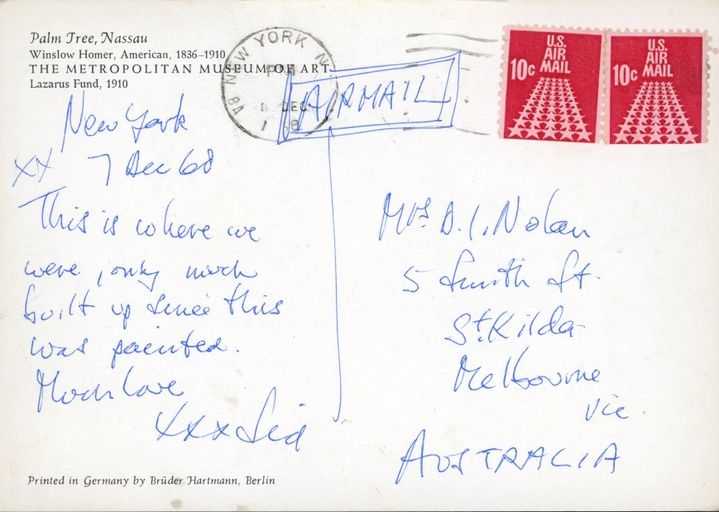 Palm Tree, Nassau
Winslow Homer, American, 1836-1910
THE METROPOLITAN MUSEUM OF ART
Lazarus Fund, 1910
NEW YORK N
PM
DEC
AIRMAIL
U.S.
AIR
MAIL
10c
U.S.
AIR
MAIL
10c
New York
XX 7 Dec 68
This is where we
were, only much
built up since this
was painted.
Much love
XXX Sid
Mrs D. I. Nolan
5 Smith St.
St. Kilda
Melbourne
Vic
AUSTRALIA
Printed in Germany by Brüder Hartmann, Berlin